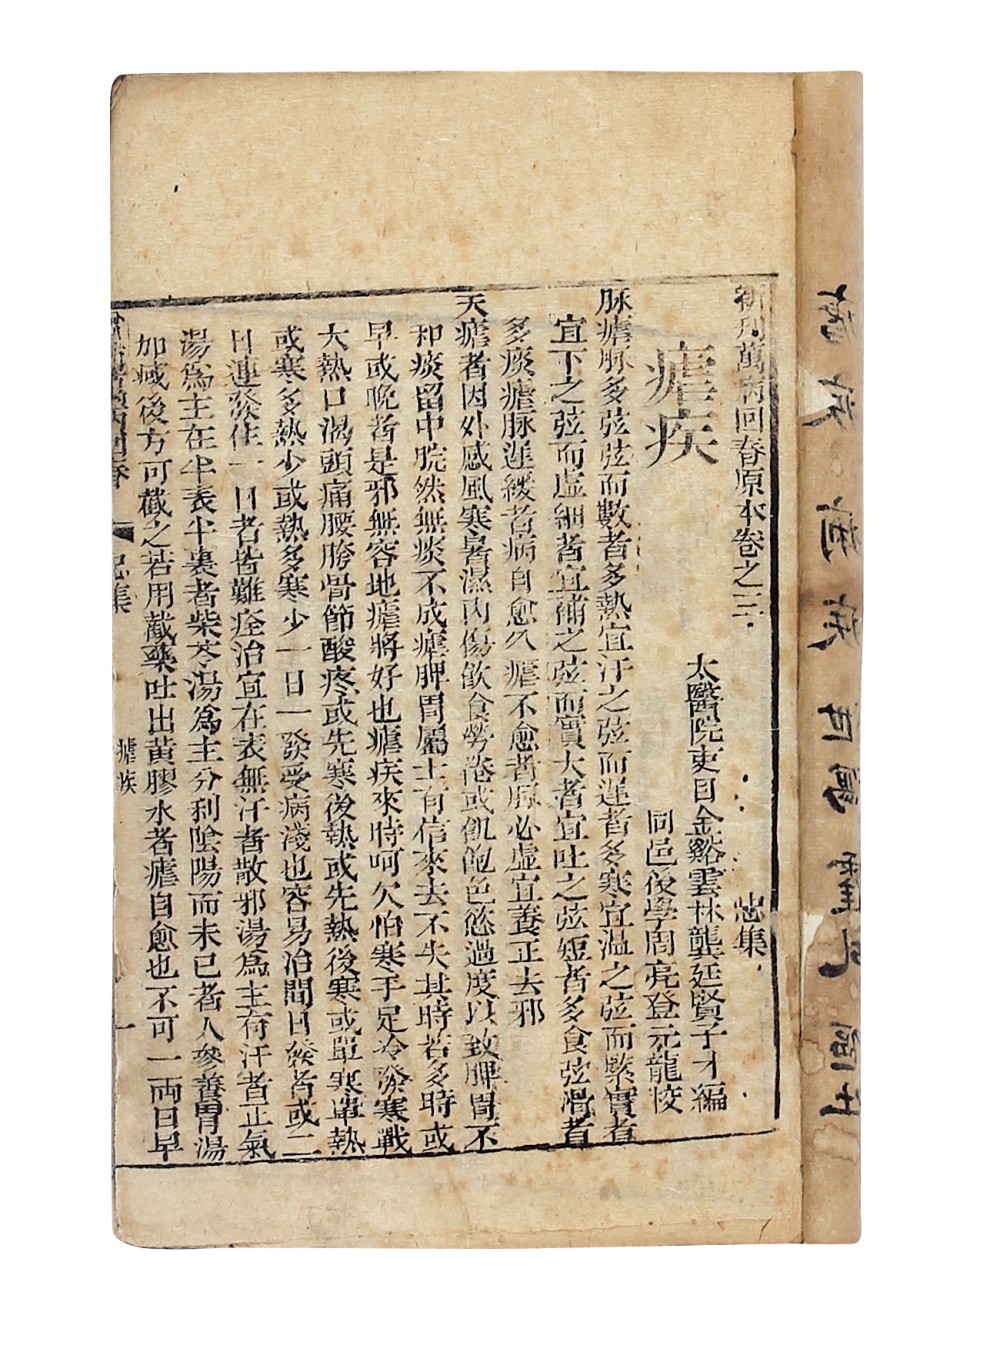 新刋萬病回春原本卷之三 忠集
太醫院吏目金谿雲林龔廷賢子才編
同邑後學周亮登元龍校
瘧疾
脉瘧脉多弦弦而數者多熱宜汗之弦而遲者多寒宜温之弦而緊實者
宜下之弦而虛細者宜補之弦而實大者宜吐之弦短者多食弦滑者
多痰瘧脉遲緩者病自愈久瘧不愈者脉必虛宜養正去邪
夫瘧者因外感風寒暑濕內傷飲食勞倦或飢飽色慾過度以致脾胃不
和痰留中脘然無痰不成瘧脾胃屬土有信來去不失其時若多時或
早或晚者是邪無容地瘧將好也瘧疾來時呵欠怕寒手足冷發寒戰
大熱口渴頭痛腰胯骨節酸疼或先寒後熱或先熱後寒或單寒單熱
或寒多熱少或熱多寒少一日一發受病淺也容易治間日發者或二
日連發住一日者皆難痊治宜在表無汗者散邪湯爲主有汗者正氣
湯爲主在半表半裏者柴苓湯爲主分利陰陽而未已者人參養胃湯
加减後方可截之若用截藥吐出黃膠水者瘧自愈也不可一兩日早
萬病回春 忠集 瘧疾 一